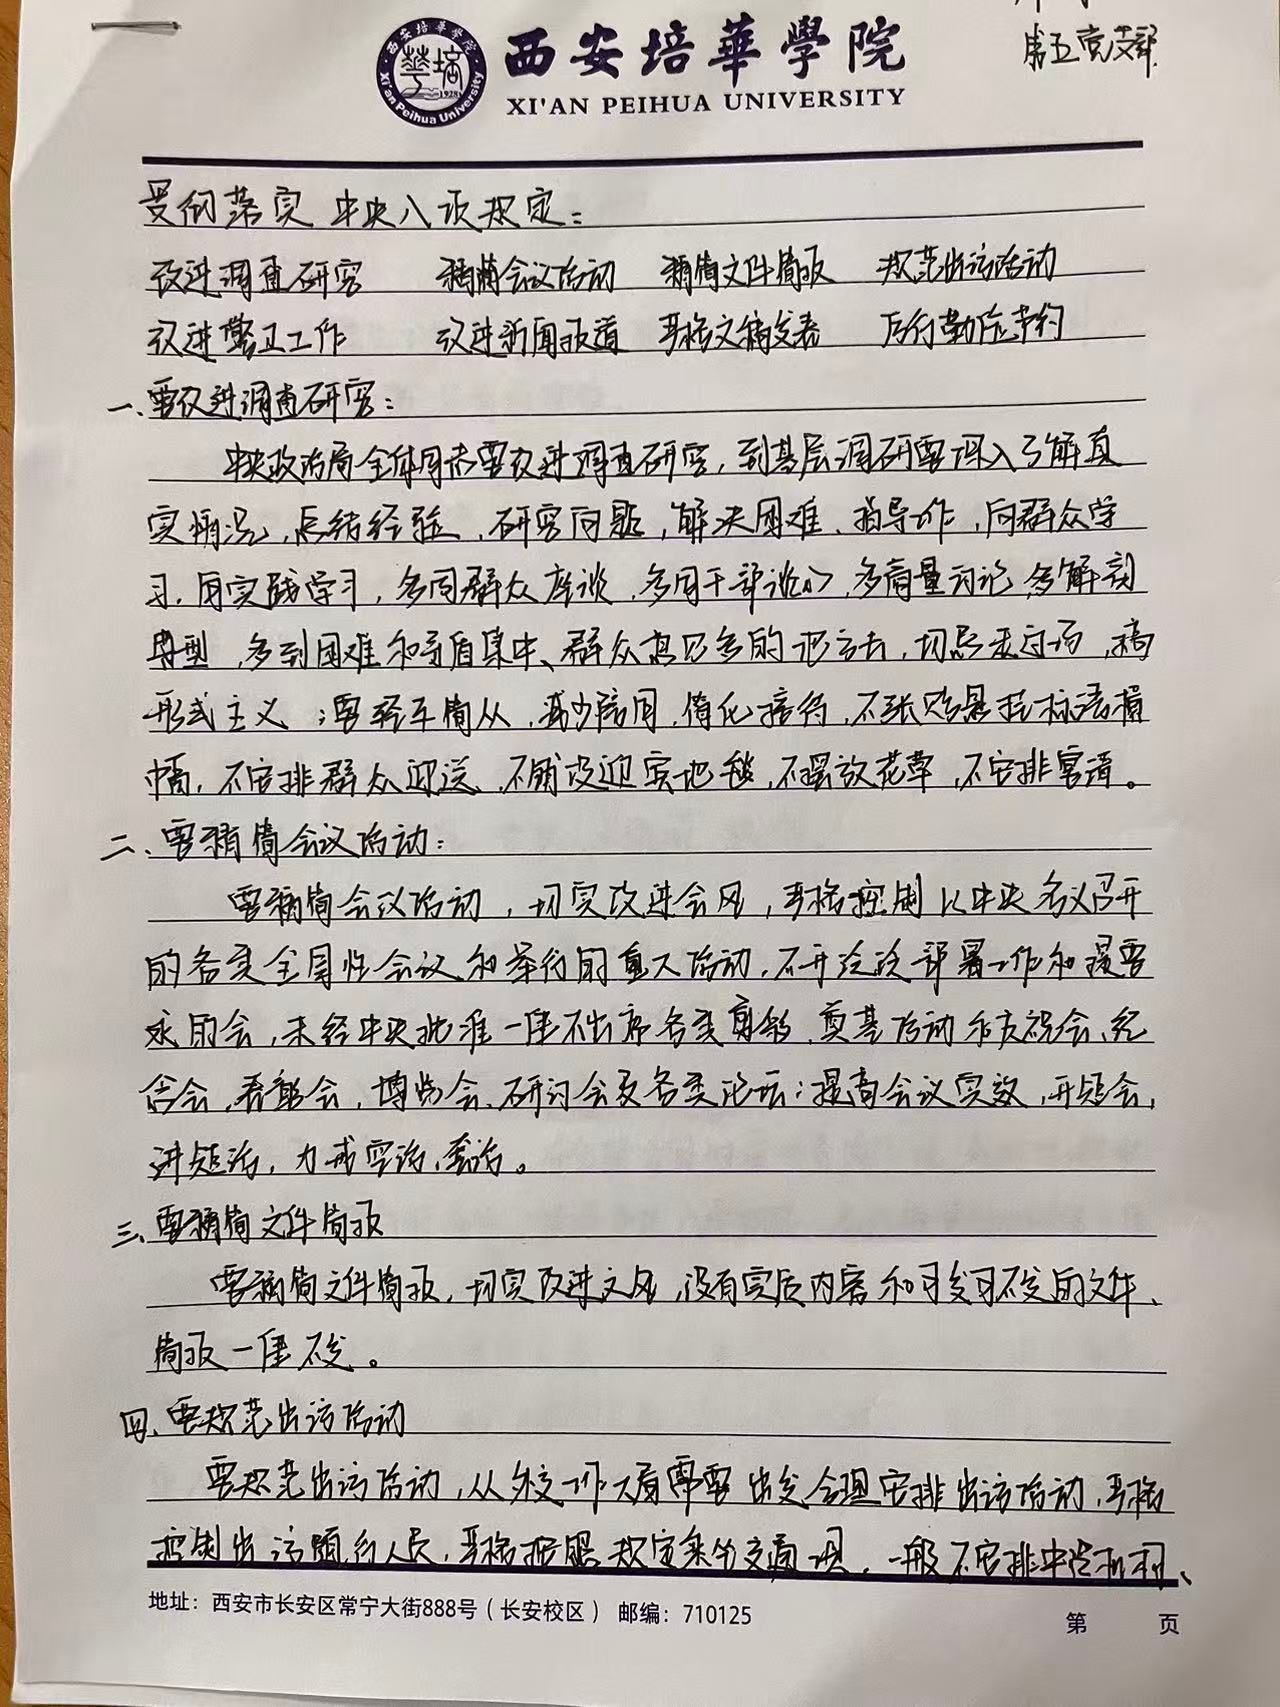 第五党支部
西安培華學院
XI'AN PEIHUA UNIVERSITY
西安培華學院
1928
Xi'an Peihua University
贯彻落实中央八项规定:
改进调查研究 精简会议活动 精简文件简报 规范出访活动
改进警卫工作 改进新闻报道 严格文稿发表 厉行勤俭节约
一、要改进调查研究:
中央政治局全体同志要改进调查研究,到基层调研要深入了解真
实情况,总结经验、研究问题,解决困难、指导工作,向群众学
习、向实践学习,多同群众座谈,多同干部谈心,多商量讨论,多解剖
典型,多到困难和矛盾集中、群众意见多的地方去,切忌走过场,搞
形式主义;要轻车简从,减少陪同,简化接待,不张贴悬挂标语横
幅,不安排群众迎送,不铺设迎宾地毯,不摆放花草,不安排宴请。
二、要精简会议活动:
要精简会议活动,切实改进会风,严格控制以中央名义召开
的各类全国性会议和举行的重大活动,不开泛泛部署工作和提要
求的会,未经中央批准一律不出席各类剪彩、奠基活动和庆祝会、纪
念会、表彰会、博览会、研讨会及各类论坛;提高会议实效,开短会,
讲短话,力戒空话、套话。
三、要精简文件简报
要精简文件简报,切实改进文风,没有实质内容和可发可不发的文件、
简报一律不发。
四、要规范出访活动
要规范出访活动,从外交工作大局需要出发合理安排出访活动,严格
控制出访随行人员,严格按照规定乘坐交通工具,一般不安排中资机构、
地址:西安市长安区常宁大街888号(长安校区) 邮编:710125
第 页